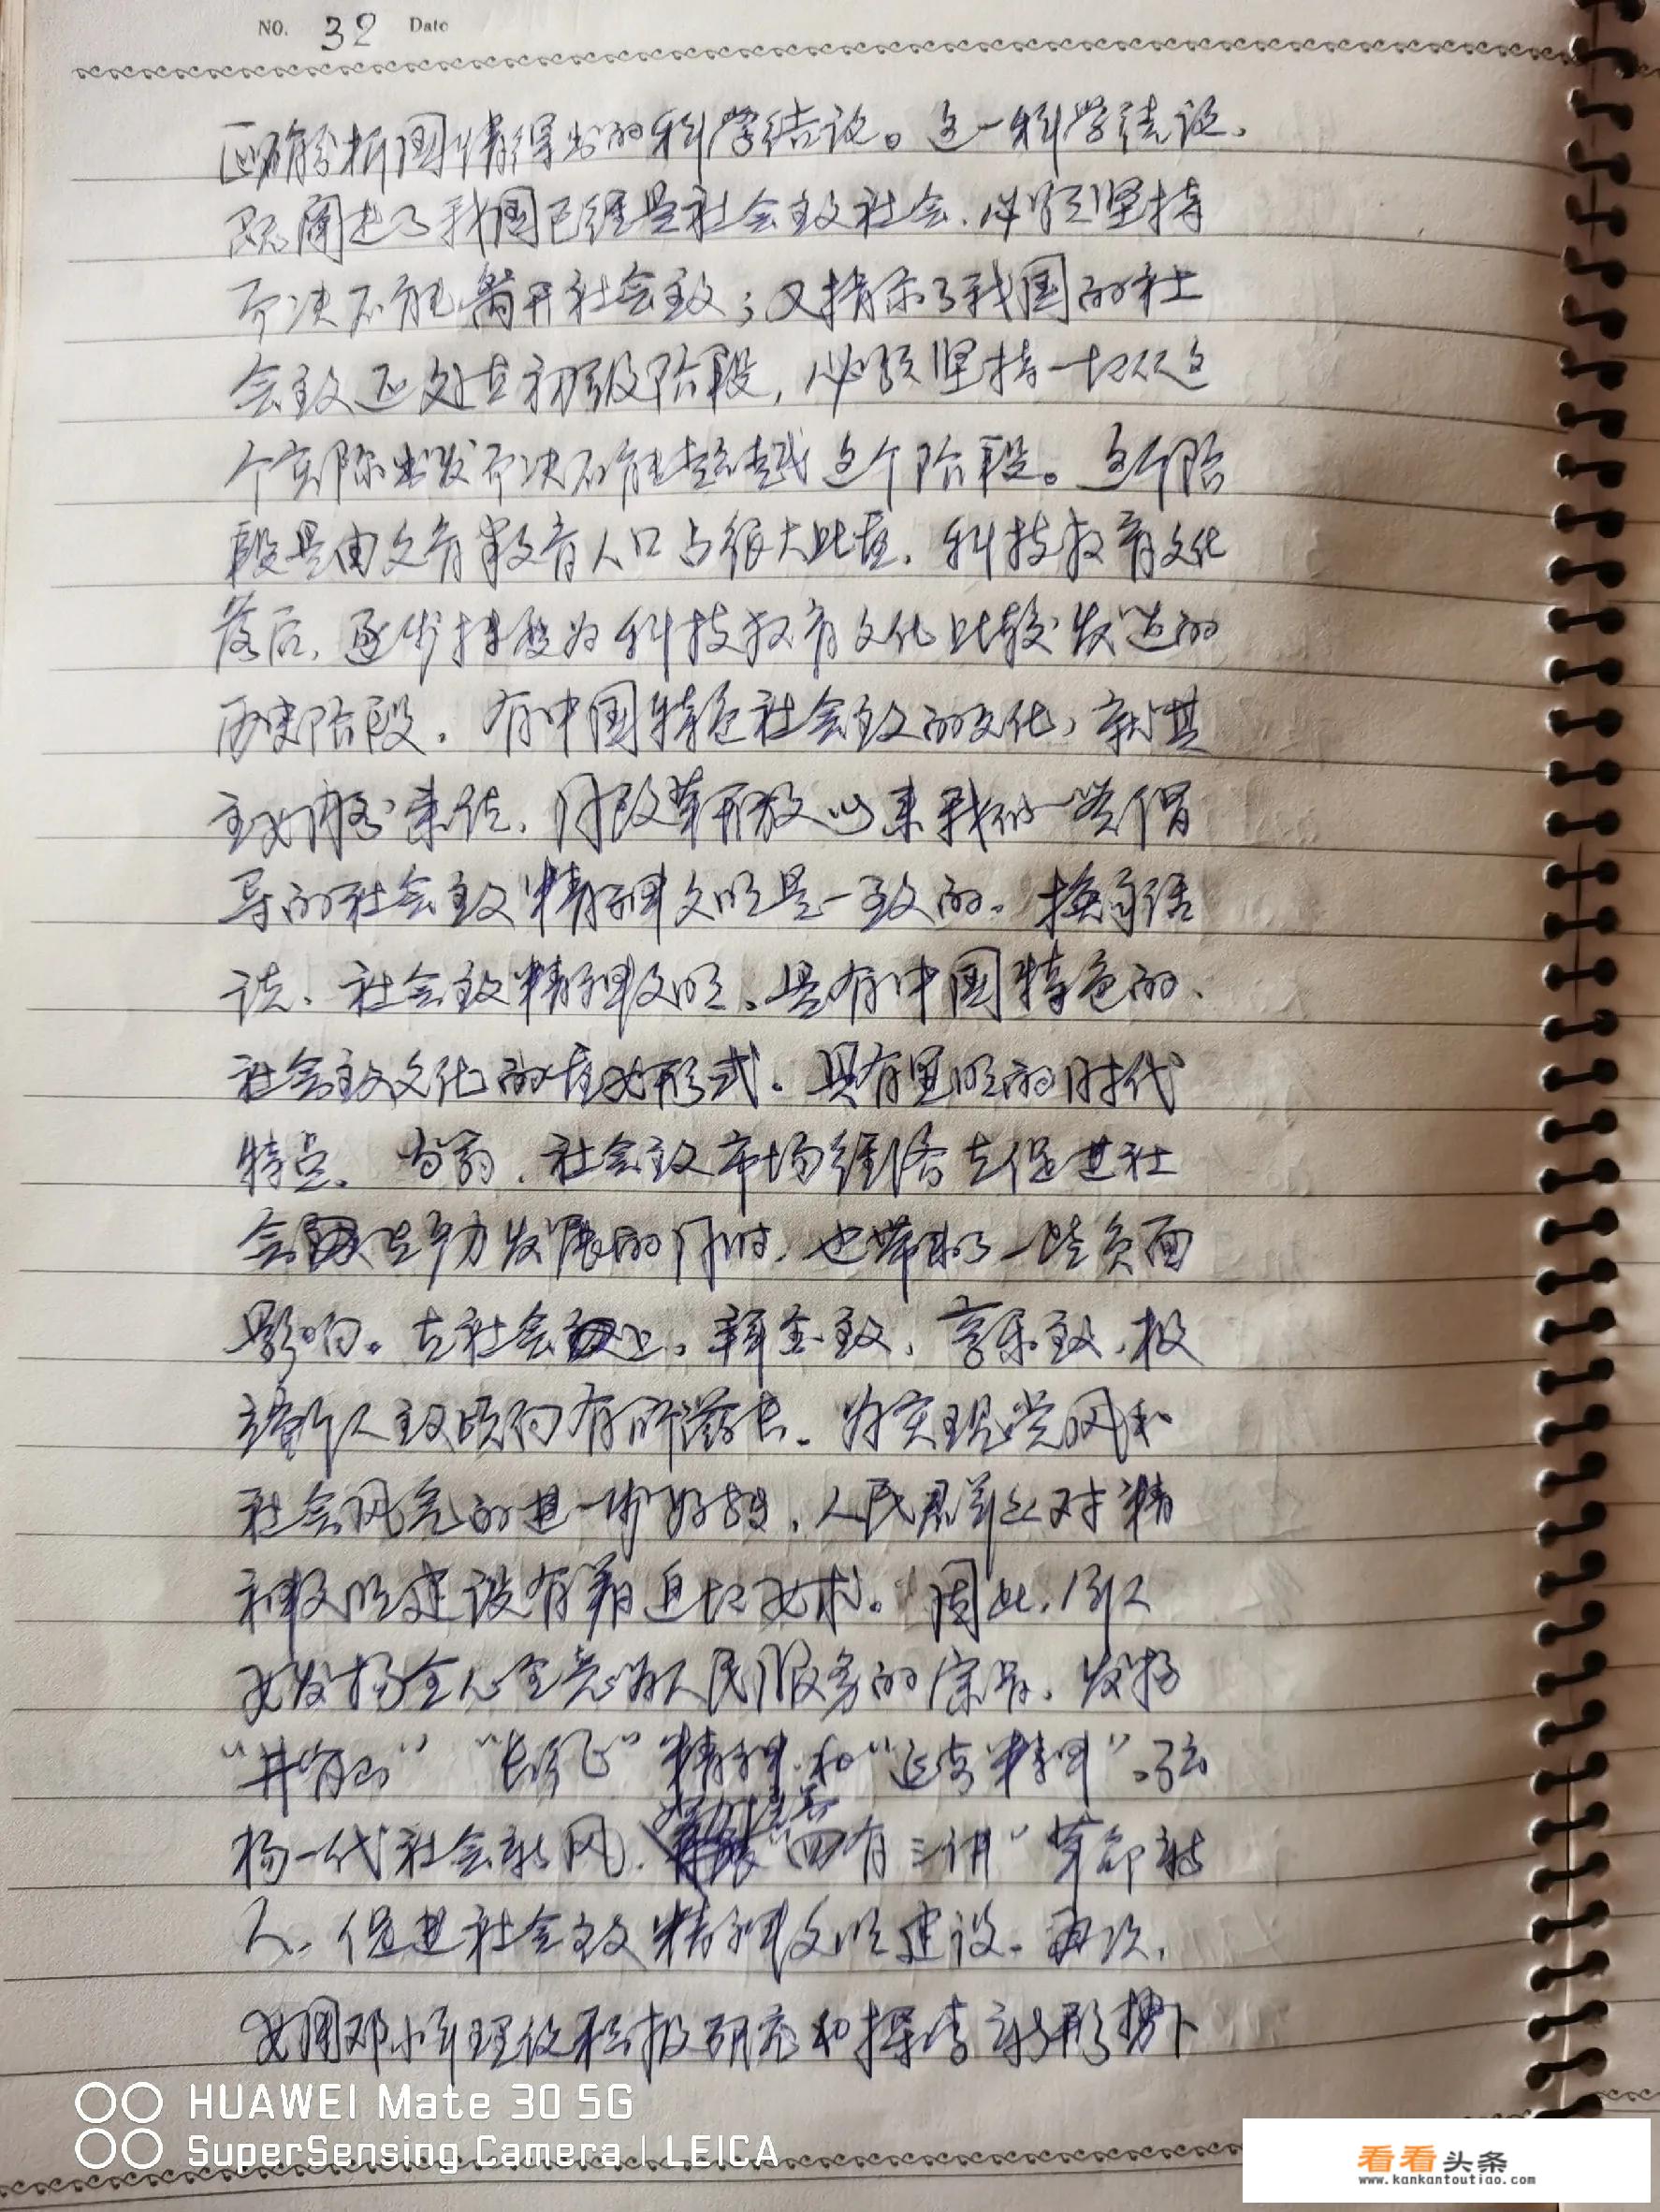 NO. 32 Date
正确分析国情得出的科学结论。这一科学结论,
既阐述了我国已经是社会主义社会,必须坚持
而决不能离开社会主义;又揭示了我国的社
会主义还处在初级阶段,必须坚持一切从这
个实际出发而决不能超越这个阶段。这个阶
段是由文盲半文盲人口占很大比重,科技教育文化
落后,逐步转变为科技教育文化比较发达的
历史阶段。有中国特色社会主义的文化,就其
主要内容来说,同改革开放以来我们一贯倡
导的社会主义精神文明是一致的。换句话
说,社会主义精神文明,是有中国特色的,
社会主义文化的重要形式。具有鲜明的时代
特点。当前,社会主义市场经济在促进社
会生产力发展的同时,也带来了一些负面
影响。在社会上,拜金主义,享乐主义,极
端个人主义倾向有所滋长。为实现党风和
社会风气的进一步好转,人民群众对精
神文明建设有着迫切要求。因此,我们
要发扬全心全意为人民服务的宗旨,发扬
“井岗山”“长征”精神和“延安精神”,弘
扬一代社会新风,“四有三讲”革命新
人,促进社会主义精神文明建设。再次,
要用邓小平理论积极研究和探索新形势下
HUAWEI Mate 30 5G
SuperSensing Camera | LEICA
看看头条
www.kankantoutiao.com